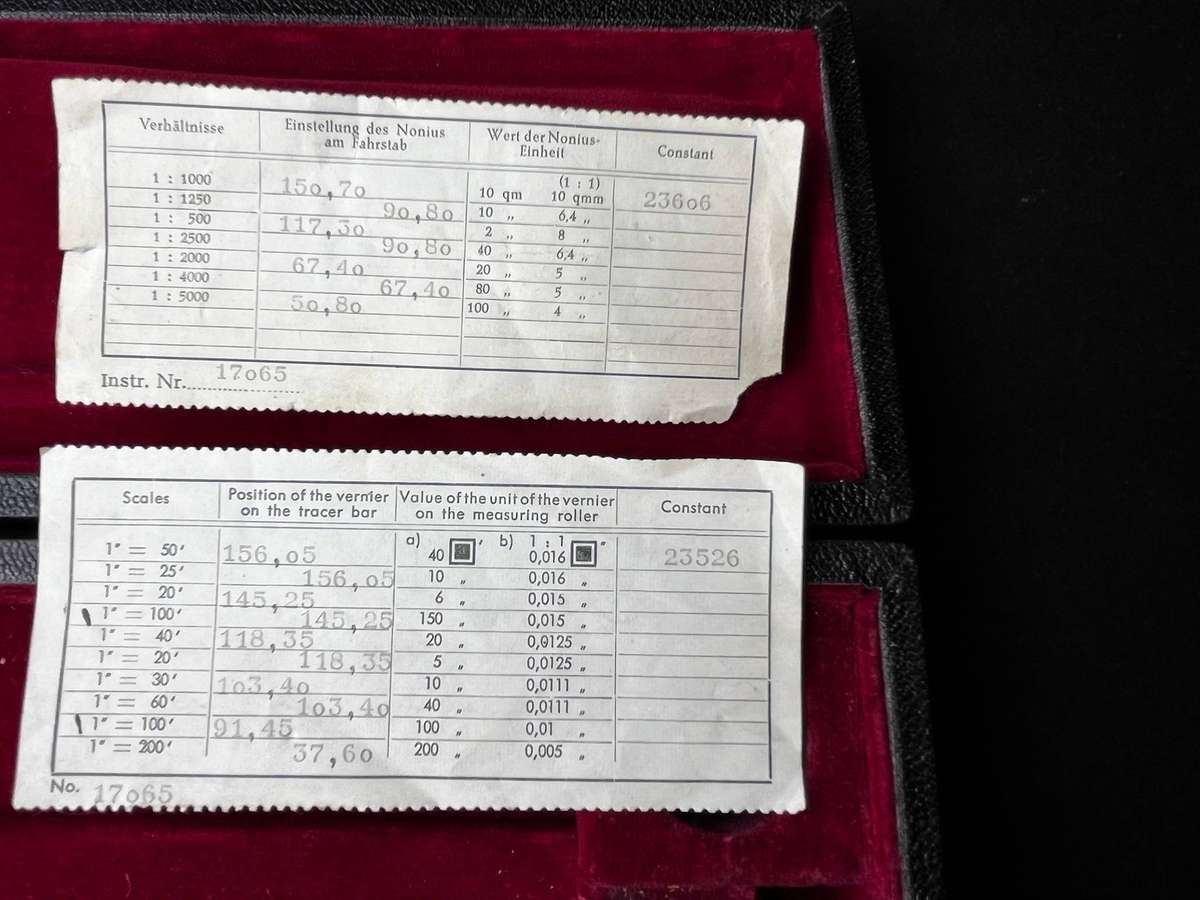 Verhältnisse Einstellung des Nonius am Fahrstab Wert der Nonius-Einheit Constant
(1 : 1)
1 : 1000 150,70 10 qm 10 qmm 23606
1 : 1250 90,80 10 „ 6,4 „
1 : 500 117,30 2 „ 8 „
1 : 2500 90,80 40 „ 6,4 „
1 : 2000 67,40 20 „ 5 „
1 : 4000 67,40 80 „ 5 „
1 : 5000 50,80 100 „ 4 „
Instr. Nr. 17065
Scales Position of the vernier on the tracer bar Value of the unit of the vernier on the measuring roller Constant
a) b) 1 : 1
1" = 50' 156,05 40 ' 0,016 " 23526
1" = 25' 156,05 10 „ 0,016 „
1" = 20' 145,25 6 „ 0,015 „
1" = 100' 145,25 150 „ 0,015 „
1" = 40' 118,35 20 „ 0,0125 „
1" = 20' 118,35 5 „ 0,0125 „
1" = 30' 103,40 10 „ 0,0111 „
1" = 60' 103,40 40 „ 0,0111 „
1" = 100' 91,45 100 „ 0,01 „
1" = 200' 37,60 200 „ 0,005 „
No. 17065